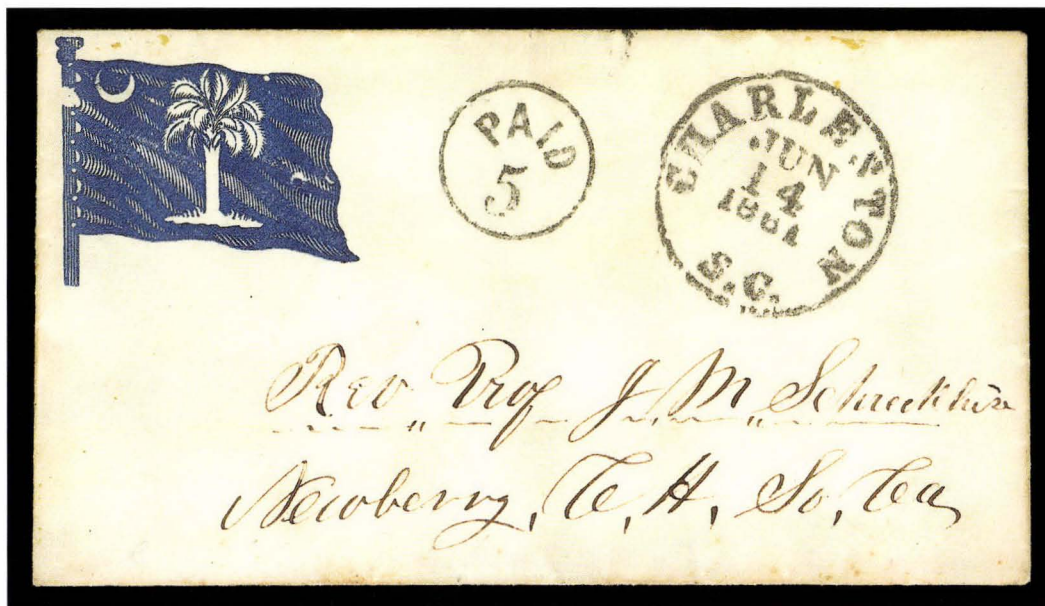 PAID
5
CHARLESTON
JUN
14
1861
S.C.
Rev Prof J. M. Schreckhise
Newberry, C, H, So, Ca,